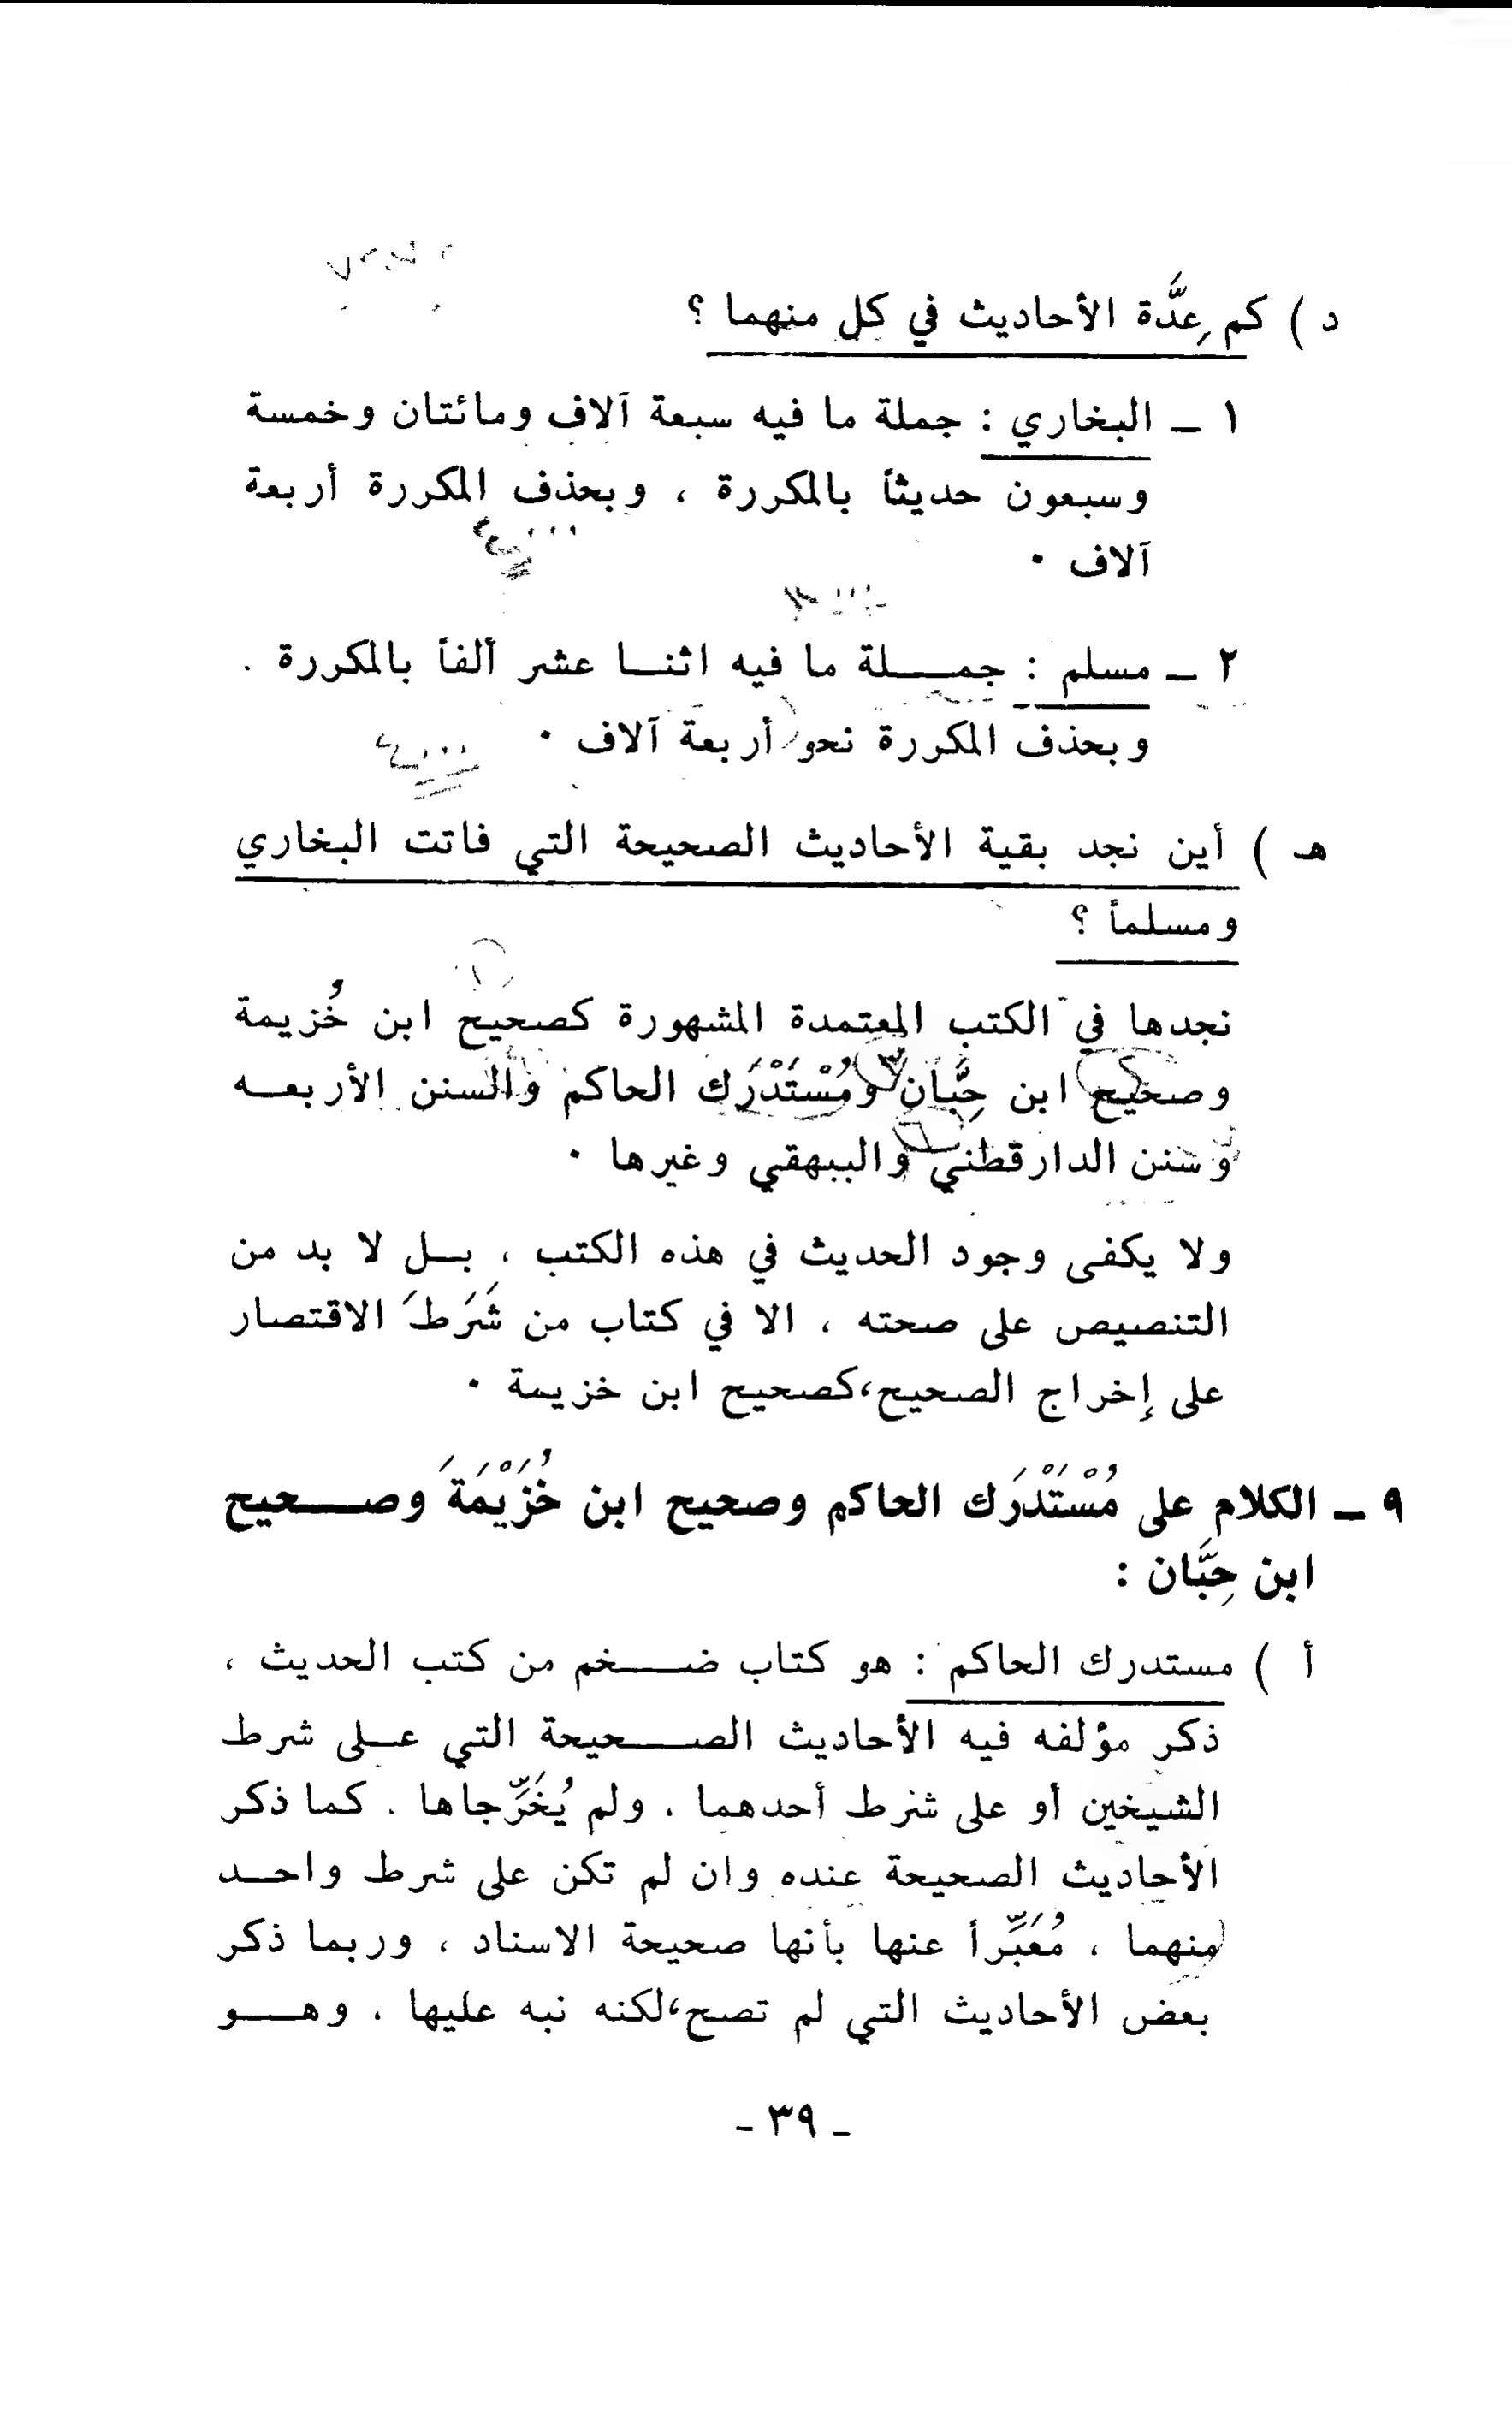 د ) كم عِدَّة الأحاديث في كل منهما ؟
١ ـ البخاري : جملة ما فيه سبعة آلاف ومائتان وخمسة
وسبعون حديثاً بالمكررة ، وبحذف المكررة أربعة
آلاف .
٢ ـ مسلم : جمـــلة ما فيه اثنـا عشر ألفاً بالمكررة .
وبحذف المكررة نحو أربعة آلاف .
٤٠٠٠
هـ ) أين نجد بقية الأحاديث الصحيحة التي فاتت البخاري
ومسلماً ؟
نجدها في الكتب المعتمدة المشهورة كصحيح ابن خُزيمة
وصحيح ابن حِبَّان ومُسْتَدْرَك الحاكم والسنن الأربعـه
وسنن الدارقطني والبيهقي وغيرها .
ولا يكفى وجود الحديث في هذه الكتب ، بـل لا بد من
التنصيص على صحته ، الا في كتاب من شَرَطَ الاقتصار
على إخراج الصحيح،كصحيح ابن خزيمة .
٩ ـ الكلام على مُسْتَدْرَك الحاكم وصحيح ابن خُزَيْمَةَ وصـــحيح
ابن حِبَّان :
أ ) مستدرك الحاكم : هو كتاب ضــخم من كتب الحديث ،
ذكر مؤلفه فيه الأحاديث الصـــحيحة التي عـلى شرط
الشيخين أو على شرط أحدهما ، ولم يُخَرِّجاها . كما ذكر
الأحاديث الصحيحة عنده وان لم تكن على شرط واحـد
منهما ، مُعَبِّراً عنها بأنها صحيحة الاسناد ، وربما ذكر
بعض الأحاديث التي لم تصح،لكنه نبه عليها ، وهــو
ـ ٣٩ ـ